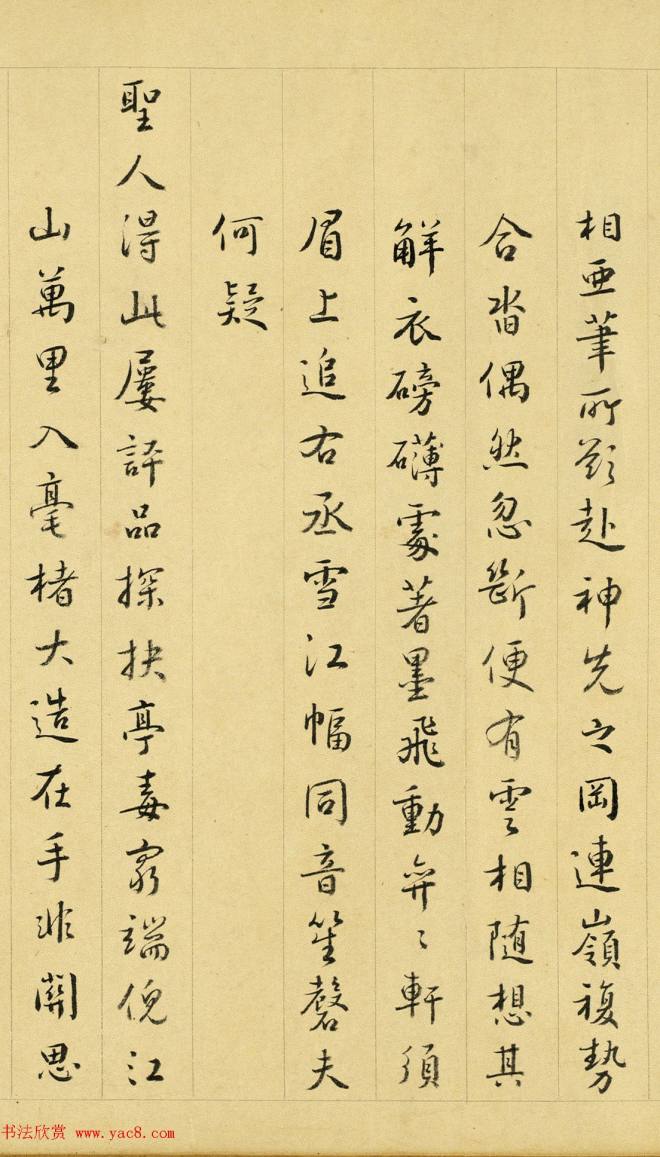 相亜筆所欲赴神先之岡連嶺複勢
合沓偶然忽斷便有雲相随想其
解衣磅礴處著墨飛動弈〻軒須
眉上追右丞雪江幅同音笙磬夫
何疑
聖人得此屢評品探抉亭毒窮端倪江
山萬里入毫楮大造在手非關思
书法欣赏 www.yac8.com